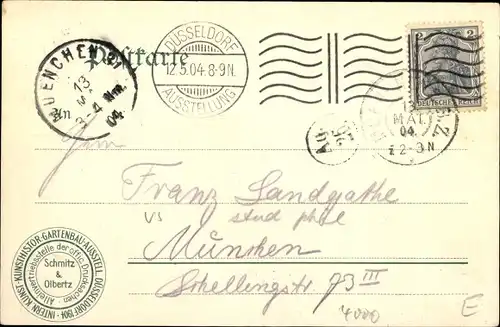 Postkarte
DÜSSELDORF
12.5.04.8-9N.
AUSSTELLUNG
2 2
DEUTSCHES REICH
MUENCHEN
13
3-4 Nm.
04
An
13
MAI.
04
2-3N
Franz Landgathe
vs stud phil
München
Schellingstr 73 III
4000
E
INTERN. KUNST- KUNSTHISTOR- GARTENBAU- AUSSTELL. DÜSSELDORF 1904
Alleinvertriebsstelle der offic. Drucksachen
Schmitz
&
Olbertz